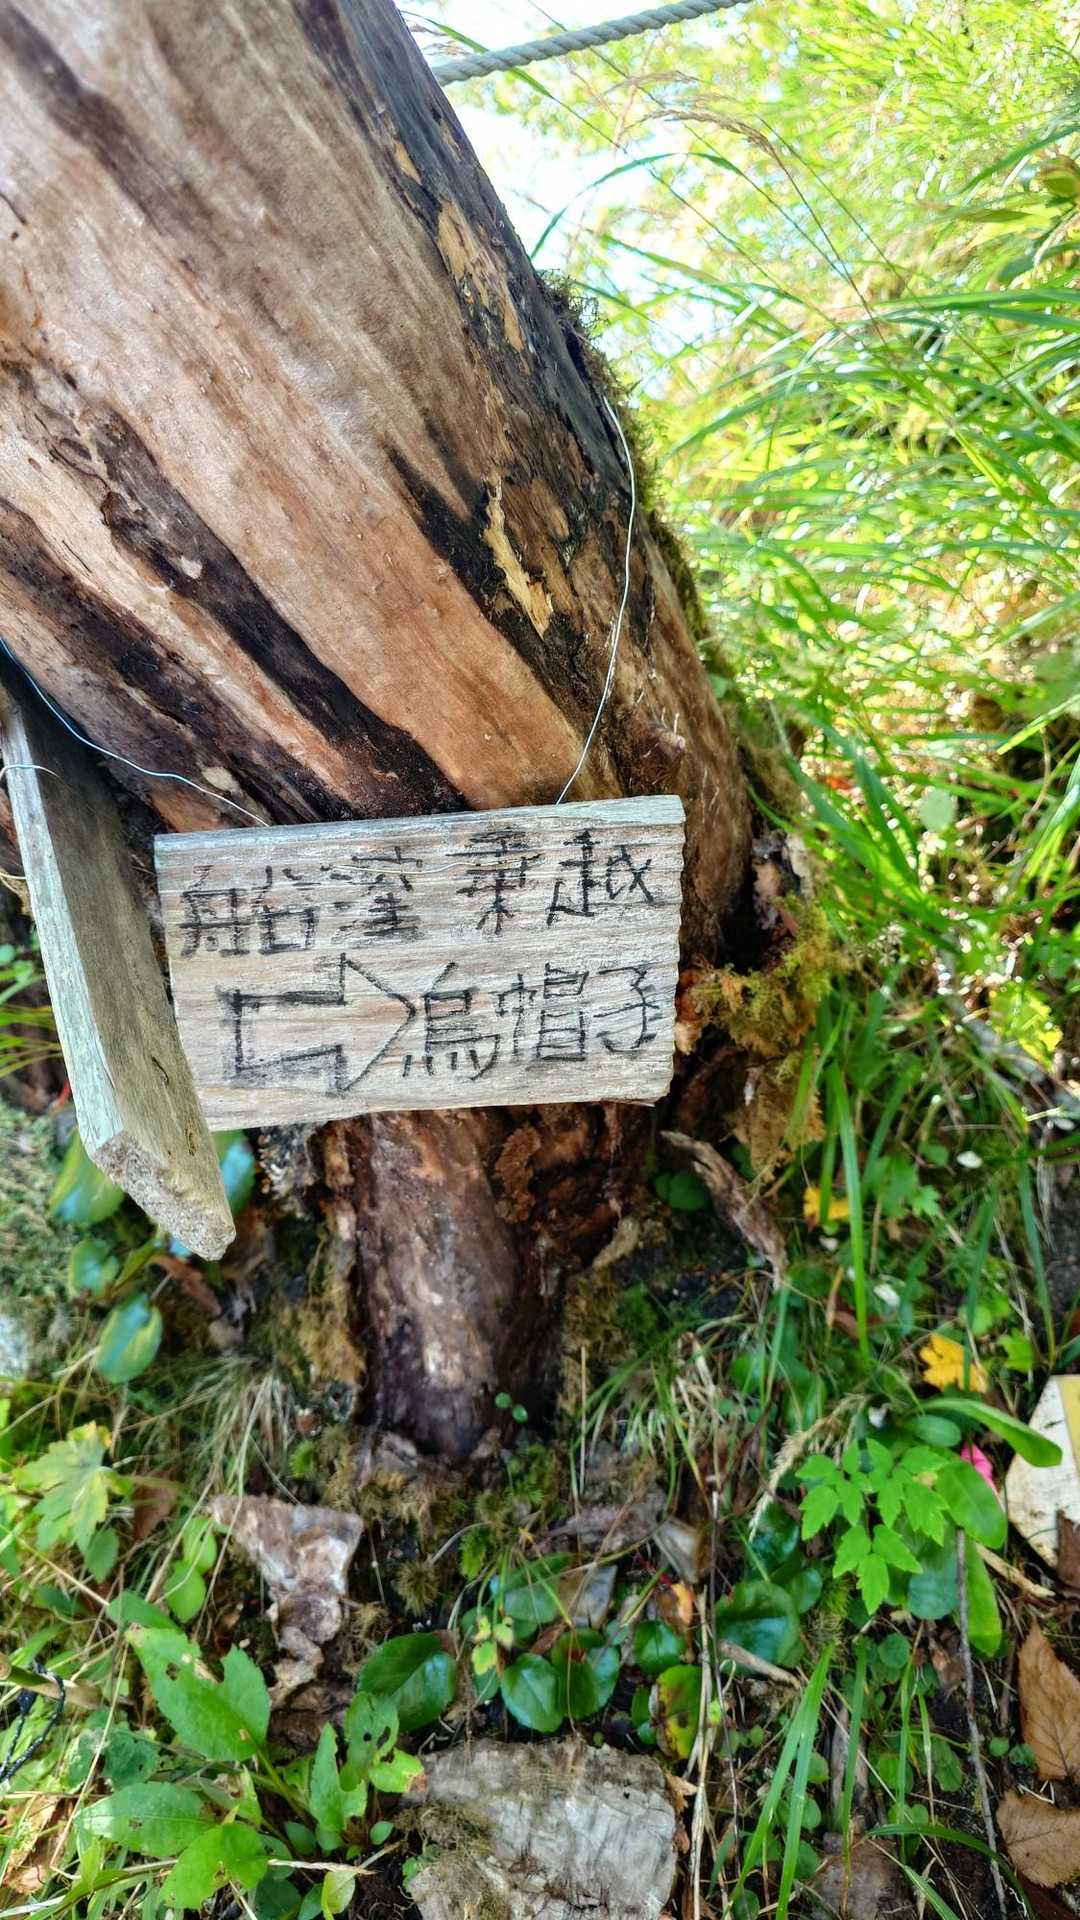 船窪乗越
烏帽子